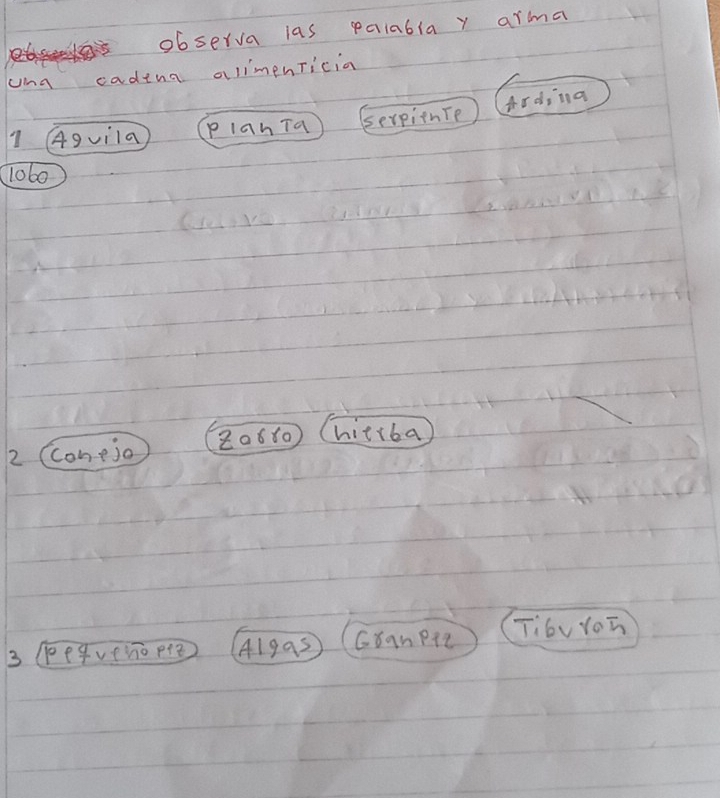 observa las palabra y arma
una cadena alimenticia
1 Aguila planta serpiente Ardilla
lobo
2 conejo zorro hierba
3 pequeño pez Algas Gran pez Tiburon